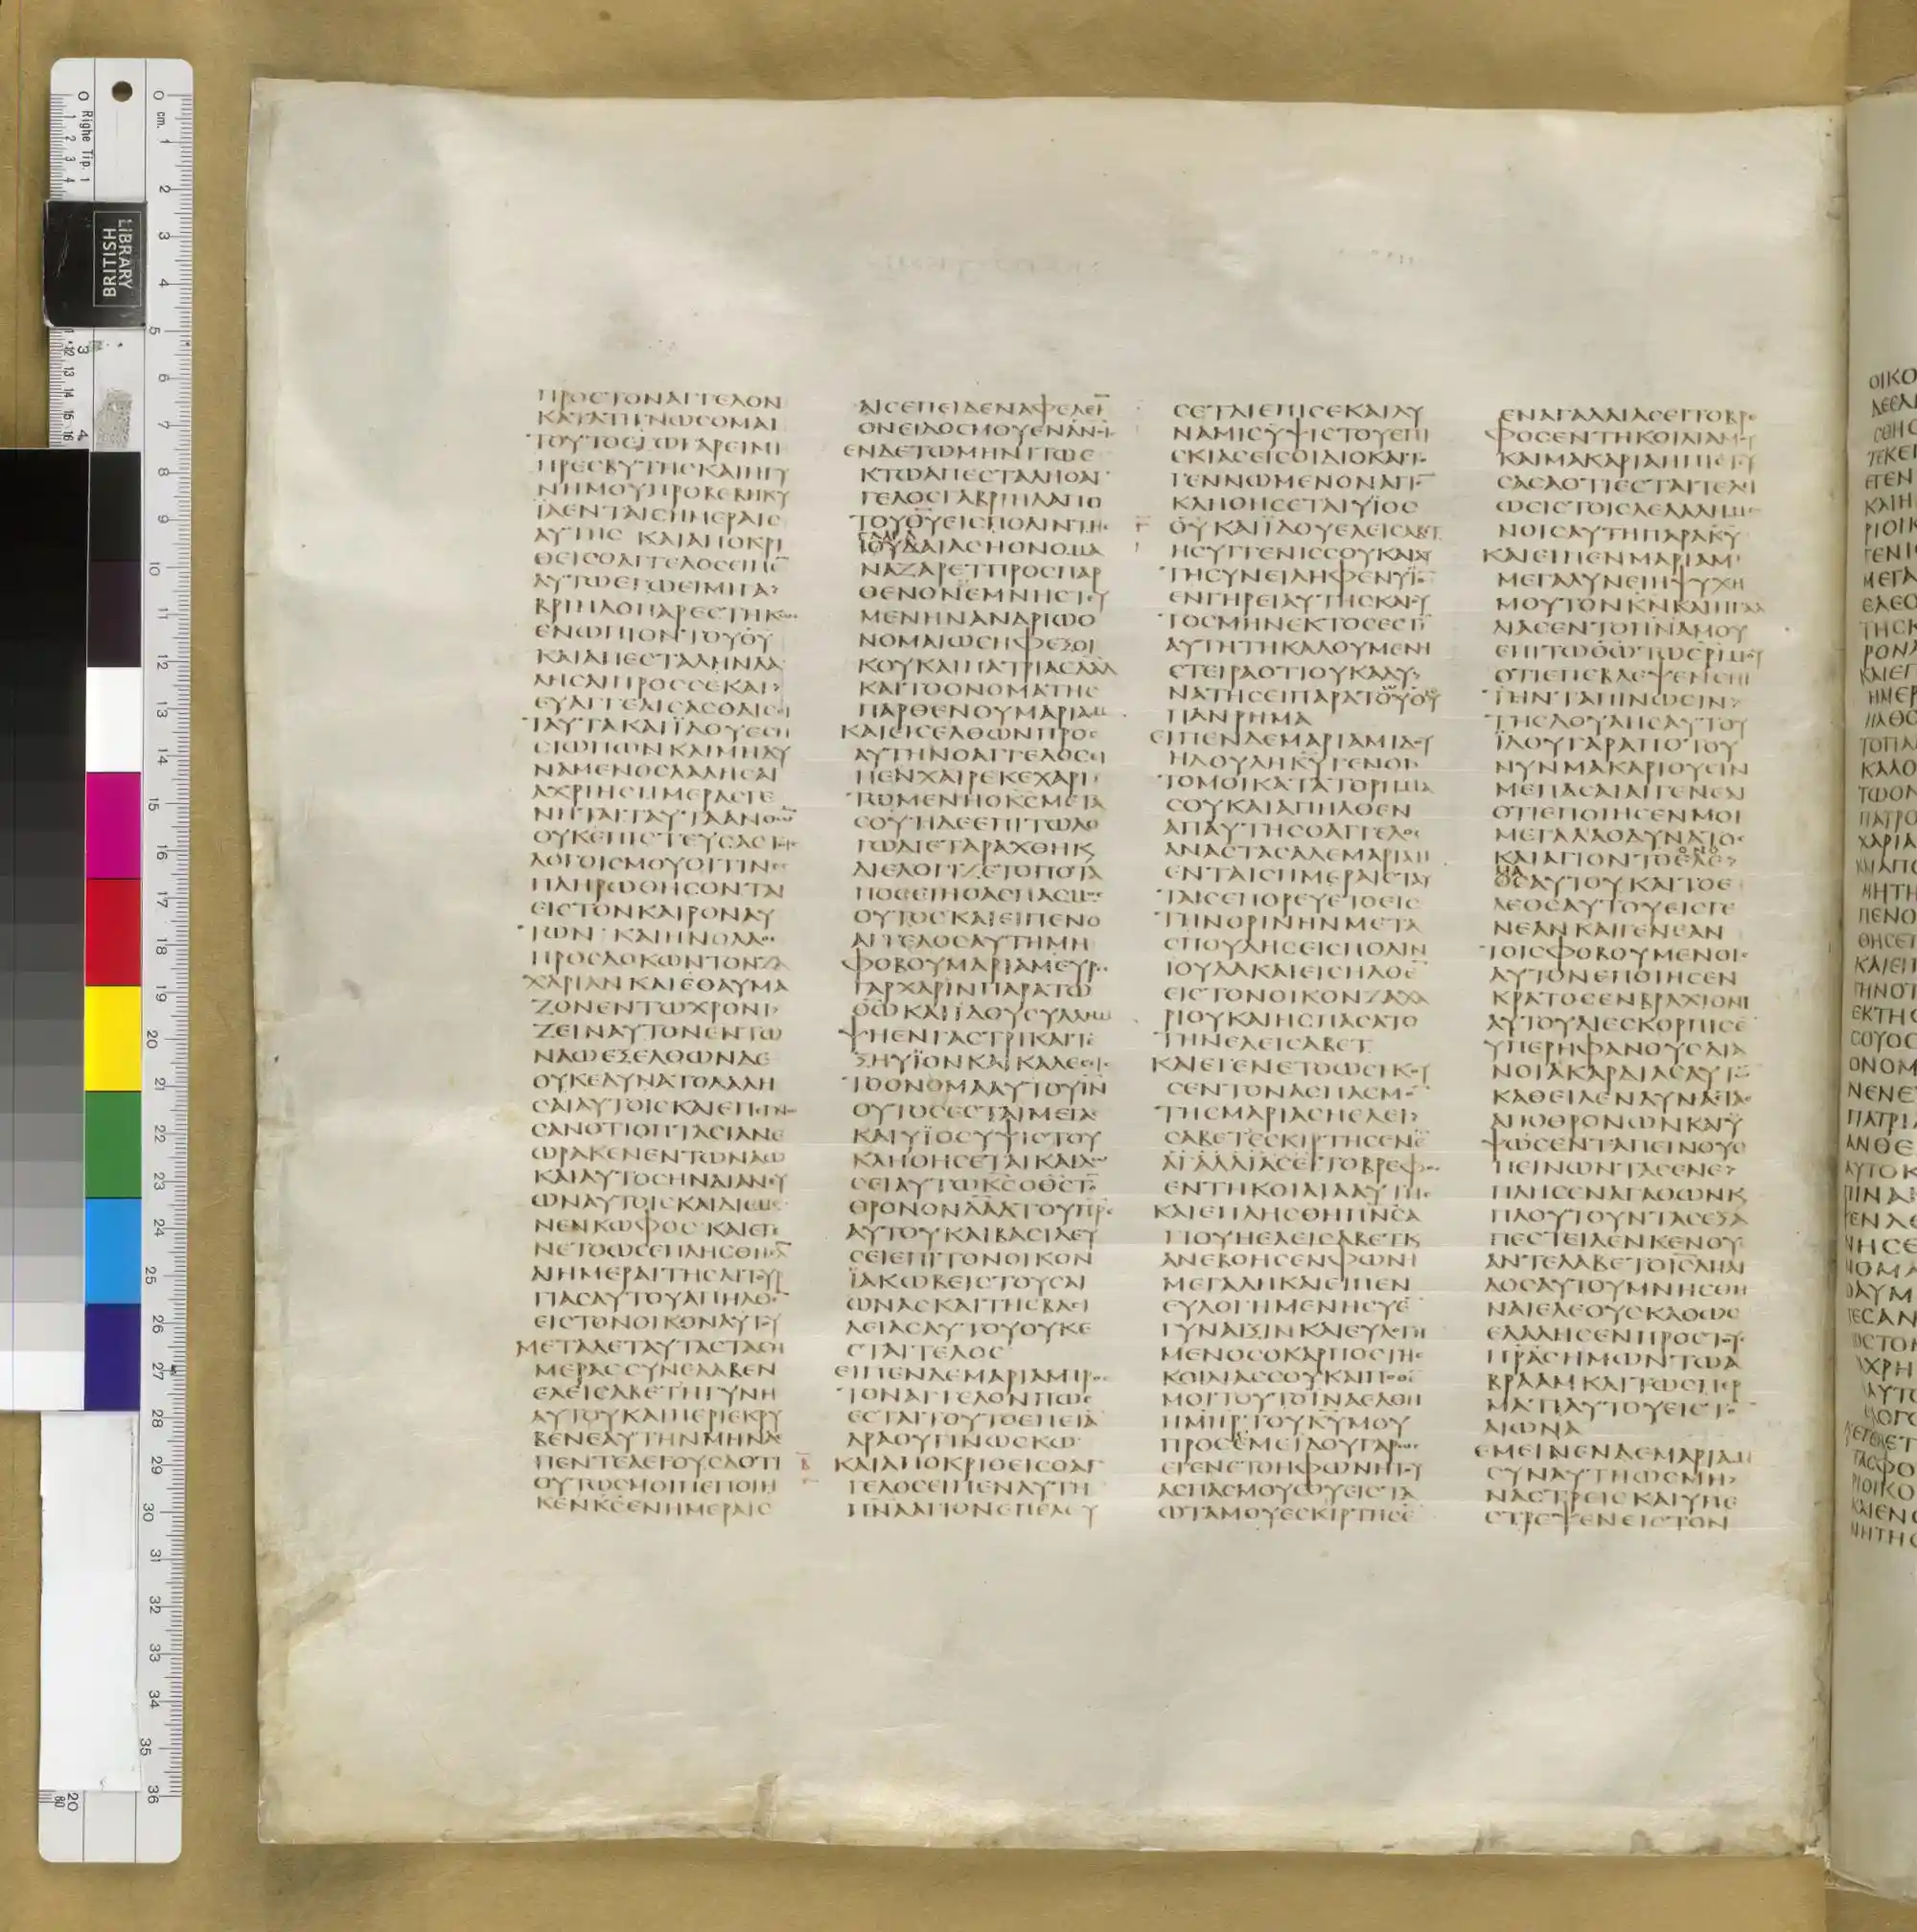 ΠΡΟΣΤΟΝΑΓΓΕΛΟΝ
ΚΑΤΑΤΙΓΝΩΣΟΜΑΙ
ΤΟΥΤΟΕΓΩΓΑΡΕΙΜΙ
ΠΡΕΣΒΥΤΗΣΚΑΙΗΓΥ
ΝΗΜΟΥΠΡΟΒΕΒΗΚΥ
ΪΑΕΝΤΑΙΣΗΜΕΡΑΙΣ
ΑΥΤΗΣ ΚΑΙΑΠΟΚΡΙ
ΘΕΙΣΟΑΓΓΕΛΟΣΕΙΠΕ̅
ΑΥΤΩΕΓΩΕΙΜΙΓΑ>
ΒΡΙΗΛΟΠΑΡΕΣΤΗΚΩΣ
ΕΝΩΠΙΟΝΤΟΥΘ̅Υ̅
ΚΑΙΑΠΕΣΤΑΛΗΝΛΑ
ΛΗΣΑΙΠΡΟΣΣΕΚΑΙ>
ΕΥΑΓΓΕΛΙΣΑΣΘΑΙΣΟΙ
ΤΑΥΤΑΚΑΙΪΔΟΥΕΣΗ
ΣΙΩΠΩΝΚΑΙΜΗΔΥ
ΝΑΜΕΝΟΣΛΑΛΗΣΑΙ
ΑΧΡΙΗΣΗΜΕΡΑΣΓΕ
ΝΗΤΑΙΤΑΥΤΑΑΝΘΩ̅
ΟΥΚΕΠΙΣΤΕΥΣΑΣΤΟΙΣ
ΛΟΓΟΙΣΜΟΥΟΙΤΙΝΕΣ
ΠΛΗΡΩΘΗΣΟΝΤΑΙ
ΕΙΣΤΟΝΚΑΙΡΟΝΑΥ
ΤΩΝ ΚΑΙΗΝΟΛΑΟΣ
ΠΡΟΣΔΟΚΩΝΤΟΝΖΑ
ΧΑΡΙΑΝΚΑΙΕΘΑΥΜΑ
ΖΟΝΕΝΤΩΧΡΟΝΙ>
ΖΕΙΝΑΥΤΟΝΕΝΤΩ
ΝΑΩΕΞΕΛΘΩΝΔΕ
ΟΥΚΕΔΥΝΑΤΟΛΑΛΗ
ΣΑΙΑΥΤΟΙΣΚΑΙΕΠΕΓΝΩ
ΣΑΝΟΤΙΟΠΤΑΣΙΑΝΕ
ΩΡΑΚΕΝΕΝΤΩΝΑΩ
ΚΑΙΑΥΤΟΣΗΝΔΙΑΝΕΥ
ΩΝΑΥΤΟΙΣΚΑΙΔΙΕΜΕ
ΝΕΝΚΩΦΟΣ ΚΑΙΕΓΕ
ΝΕΤΟΩΣΕΠΛΗΣΘΗΣΑ̅
ΑΙΗΜΕΡΑΙΤΗΣΛΙΤΟΥΡ
ΓΙΑΣΑΥΤΟΥΑΠΗΛΘΕ̅
ΕΙΣΤΟΝΟΙΚΟΝΑΥΤΟΥ
ΜΕΤΑΔΕΤΑΥΤΑΣΤΑΣΗ
ΜΕΡΑΣΣΥΝΕΛΑΒΕΝ
ΕΛΕΙΣΑΒΕΤΗΓΥΝΗ
ΑΥΤΟΥΚΑΙΠΕΡΙΕΚΡΥ
ΒΕΝΕΑΥΤΗΝΜΗΝΑΣ
ΠΕΝΤΕΛΕΓΟΥΣΑΟΤΙ
ΟΥΤΩΣΜΟΙΠΕΠΟΙΗ
ΚΕΝΚ̅Σ̅ΕΝΗΜΕΡΑΙΣ
ΑΙΣΕΠΕΙΔΕΝΑΦΕΛΕΙ̅
ΟΝΕΙΔΟΣΜΟΥΕΝΑΝΟΙΣ
ΕΝΔΕΤΩΜΗΝΙΤΩΕ
ΚΤΩΑΠΕΣΤΑΛΗΟΑΓ
ΓΕΛΟΣΓΑΒΡΙΗΛΑΠΟ
ΤΟΥΘ̅Υ̅ΕΙΣΠΟΛΙΝΤΗΣ
ΙΟΥΔΑΙΑΣΗΟΝΟΜΑ
ΝΑΖΑΡΕΤΠΡΟΣΠΑΡ
ΘΕΝΟΝΕΜΝΗΣΤΕΥ
ΜΕΝΗΝΑΝΔΡΙΩΟ
ΝΟΜΑΙΩΣΗΦΕΞΟΙ
ΚΟΥΚΑΙΠΑΤΡΙΑΣΔΑΔ
ΚΑΙΤΟΟΝΟΜΑΤΗΣ
ΠΑΡΘΕΝΟΥΜΑΡΙΑΜ
ΚΑΙΕΙΣΕΛΘΩΝΠΡΟΣ
ΑΥΤΗΝΟΑΓΓΕΛΟΣΕΙ
ΠΕΝΧΑΙΡΕΚΕΧΑΡΙ
ΤΩΜΕΝΗΟΚ̅Σ̅ΜΕΤΑ
ΣΟΥΗΔΕΕΠΙΤΩΛΟ
ΓΩΔΙΕΤΑΡΑΧΘΗΚ
ΔΙΕΛΟΓΙΖΕΤΟΠΟΤΑ
ΠΟΣΕΙΗΟΑΣΠΑΣΜΟΣ
ΟΥΤΟΣΚΑΙΕΙΠΕΝΟ
ΑΓΓΕΛΟΣΑΥΤΗΜΗ
ΦΟΒΟΥΜΑΡΙΑΜΕΥΡΕΣ
ΓΑΡΧΑΡΙΝΠΑΡΑΤΩ
Θ̅Ω̅ΚΑΙΪΔΟΥΣΥΛΛΗΜ
ΨΗΕΝΓΑΣΤΡΙΚΑΙΤΕ
ΞΗΥΪΟΝΚΑΙΚΑΛΕΣΕΙΣ
ΤΟΟΝΟΜΑΑΥΤΟΥΙ̅Ν̅
ΟΥΤΟΣΕΣΤΑΙΜΕΓΑΣ
ΚΑΙΥΪΟΣΥΨΙΣΤΟΥ
ΚΛΗΘΗΣΕΤΑΙΚΑΙΔΩ
ΣΕΙΑΥΤΩΚ̅Σ̅ΟΘ̅Σ̅ΤΟΝ
ΘΡΟΝΟΝΔΑΔΤΟΥΠΡΣ
ΑΥΤΟΥΚΑΙΒΑΣΙΛΕΥ
ΣΕΙΕΠΙΤΟΝΟΙΚΟΝ
ΪΑΚΩΒΕΙΣΤΟΥΣΑΙ
ΩΝΑΣΚΑΙΤΗΣΒΑΣΙ
ΛΕΙΑΣΑΥΤΟΥΟΥΚΕ
ΣΤΑΙΤΕΛΟΣ
ΕΙΠΕΝΔΕΜΑΡΙΑΜΠΡΟΣ
ΤΟΝΑΓΓΕΛΟΝΠΩΣ
ΕΣΤΑΙΤΟΥΤΟΕΠΕΙΑ̅
ΔΡΑΟΥΓΙΝΩΣΚΩ
ΚΑΙΑΠΟΚΡΙΘΕΙΣΟΑΓ
ΓΕΛΟΣΕΙΠΕΝΑΥΤΗ
Π̅Ν̅Α̅ΑΓΙΟΝΕΠΕΛΕΥ
ΣΕΤΑΙΕΠΙΣΕΚΑΙΔΥ
ΝΑΜΙΣΥΨΙΣΤΟΥΕΠΙ
ΣΚΙΑΣΕΙΣΟΙΔΙΟΚΑΙΤΟ
ΓΕΝΝΩΜΕΝΟΝΑΓΙΟ̅
ΚΛΗΘΗΣΕΤΑΙΥΪΟΣ
Θ̅Υ̅ΚΑΙΪΔΟΥΕΛΕΙΣΑΒΕΤ
ΗΣΥΓΓΕΝΙΣΣΟΥΚΑΙΑΥ
ΤΗΣΥΝΕΙΛΗΦΕΝΥΪΟ̅
ΕΝΓΗΡΕΙΑΥΤΗΣΚΑΙΟΥ
ΤΟΣΜΗΝΕΚΤΟΣΕΣΤΙ̅
ΑΥΤΗΤΗΚΑΛΟΥΜΕΝΗ
ΣΤΕΙΡΑΟΤΙΟΥΚΑΔΥ>
ΝΑΤΗΣΕΙΠΑΡΑΤΟΥΘ̅Υ̅
ΠΑΝΡΗΜΑ
ΕΙΠΕΝΔΕΜΑΡΙΑΜΙΔΟΥ
ΗΔΟΥΛΗΚ̅Υ̅ΓΕΝΟΙ
ΤΟΜΟΙΚΑΤΑΤΟΡΗΜΑ
ΣΟΥΚΑΙΑΠΗΛΘΕΝ
ΑΠΑΥΤΗΣΟΑΓΓΕΛΟΣ
ΑΝΑΣΤΑΣΑΔΕΜΑΡΙΑΜ
ΕΝΤΑΙΣΗΜΕΡΑΙΣΤΑΥ
ΤΑΙΣΕΠΟΡΕΥΕΤΟΕΙΣ
ΤΗΝΟΡΙΝΗΝΜΕΤΑ
ΣΠΟΥΔΗΣΕΙΣΠΟΛΙΝ
ΙΟΥΔΑΚΑΙΕΙΣΗΛΘΕ̅
ΕΙΣΤΟΝΟΙΚΟΝΖΑΧΑ
ΡΙΟΥΚΑΙΗΣΠΑΣΑΤΟ
ΤΗΝΕΛΕΙΣΑΒΕΤ
ΚΑΙΕΓΕΝΕΤΟΩΣΗΚΟΥ
ΣΕΝΤΟΝΑΣΠΑΣΜΟ̅
ΤΗΣΜΑΡΙΑΣΗΕΛΕΙ>
ΣΑΒΕΤΕΣΚΙΡΤΗΣΕΝΕ̅
ΑΓΑΛΛΙΑΣΕΙΤΟΒΡΕΦΟΣ
ΕΝΤΗΚΟΙΛΙΑΑΥΤΗΣ
ΚΑΙΕΠΛΗΣΘΗΠ̅Ν̅Σ̅Α
ΓΙΟΥΗΕΛΕΙΣΑΒΕΤΚ
ΑΝΕΒΟΗΣΕΝΦΩΝΗ
ΜΕΓΑΛΗΚΑΙΕΙΠΕΝ
ΕΥΛΟΓΗΜΕΝΗΣΥΕ̅
ΓΥΝΑΙΞΙΝΚΑΙΕΥΛΟΓΗ
ΜΕΝΟΣΟΚΑΡΠΟΣΤΗΣ
ΚΟΙΛΙΑΣΣΟΥΚΑΙΠΟΘΕ̅
ΜΟΙΤΟΥΤΟΪΝΑΕΛΘΗ
ΗΜΗΡΤΟΥΚ̅Υ̅ΜΟΥ
ΠΡΟΣΕΜΕΙΔΟΥΓΑΡΩΣ
ΕΓΕΝΕΤΟΗΦΩΝΗΤΟΥ
ΑΣΠΑΣΜΟΥΣΟΥΕΙΣΤΑ
ΩΤΑΜΟΥΕΣΚΙΡΤΗΣΕ̅
ΕΝΑΓΑΛΛΙΑΣΕΙΤΟΒΡΕ
ΦΟΣΕΝΤΗΚΟΙΛΙΑΜΟΥ
ΚΑΙΜΑΚΑΡΙΑΗΠΙΣΤΕΥ
ΣΑΣΑΟΤΙΕΣΤΑΙΤΕΛΙ
ΩΣΙΣΤΟΙΣΛΕΛΑΛΗΜΕ
ΝΟΙΣΑΥΤΗΠΑΡΑΚ̅Υ̅
ΚΑΙΕΙΠΕΝΜΑΡΙΑΜ
ΜΕΓΑΛΥΝΕΙΗΨΥΧΗ
ΜΟΥΤΟΝΚ̅Ν̅ΚΑΙΗΓΑΛ
ΛΙΑΣΕΝΤΟΠ̅Ν̅Α̅ΜΟΥ
ΕΠΙΤΩΘ̅Ω̅ΤΩΣΡΙΜΟΥ
ΟΤΙΕΠΕΒΛΕΨΕΝΕΠΙ
ΤΗΝΤΑΠΙΝΩΣΙΝ>
ΤΗΣΔΟΥΛΗΣΑΥΤΟΥ
ΪΔΟΥΓΑΡΑΠΟΤΟΥ
ΝΥΝΜΑΚΑΡΙΟΥΣΙΝ
ΜΕΠΑΣΑΙΑΙΓΕΝΕΑΙ
ΟΤΙΕΠΟΙΗΣΕΝΜΟΙ
ΜΕΓΑΛΑΟΔΥΝΑΤΟΣ
ΚΑΙΑΓΙΟΝΤΟΕΛΕ>
ΟΣΑΥΤΟΥΚΑΙΤΟΕ
ΛΕΟΣΑΥΤΟΥΕΙΣΓΕ
ΝΕΑΝΚΑΙΓΕΝΕΑΝ
ΤΟΙΣΦΟΒΟΥΜΕΝΟΙΣ
ΑΥΤΟΝΕΠΟΙΗΣΕΝ
ΚΡΑΤΟΣΕΝΒΡΑΧΙΟΝΙ
ΑΥΤΟΥΔΙΕΣΚΟΡΠΙΣΕ̅
ΥΠΕΡΗΦΑΝΟΥΣΔΙΑ
ΝΟΙΑΚΑΡΔΙΑΣΑΥΤΩ̅
ΚΑΘΕΙΛΕΝΔΥΝΑΣΤΑΣ
ΑΠΟΘΡΟΝΩΝΚΑΙΥ
ΨΩΣΕΝΤΑΠΕΙΝΟΥΣ
ΠΕΙΝΩΝΤΑΣΕΝΕ>
ΠΛΗΣΕΝΑΓΑΘΩΝΚ
ΠΛΟΥΤΟΥΝΤΑΣΕΞΑ
ΠΕΣΤΕΙΛΕΝΚΕΝΟΥΣ
ΑΝΤΕΛΑΒΕΤΟΙ̅Σ̅Λ̅ΠΑΙ
ΔΟΣΑΥΤΟΥΜΝΗΣΘΗ
ΝΑΙΕΛΕΟΥΣΚΑΘΩΣ
ΕΛΑΛΗΣΕΝΠΡΟΣΤΟΥΣ
Π̅Ρ̅Α̅Σ̅ΗΜΩΝΤΩΑ
ΒΡΑΑΜΚΑΙΤΩΣΠΕΡ
ΜΑΤΙΑΥΤΟΥΕΙΣΤΟ̅
ΑΙΩΝΑ
ΕΜΕΙΝΕΝΔΕΜΑΡΙΑΜ
ΣΥΝΑΥΤΗΩΣΜΗ>
ΝΑΣΤΡΕΙΣΚΑΙΥΠΕ
ΣΤΡΕΨΕΝΕΙΣΤΟΝ
BRITISH
LIBRARY